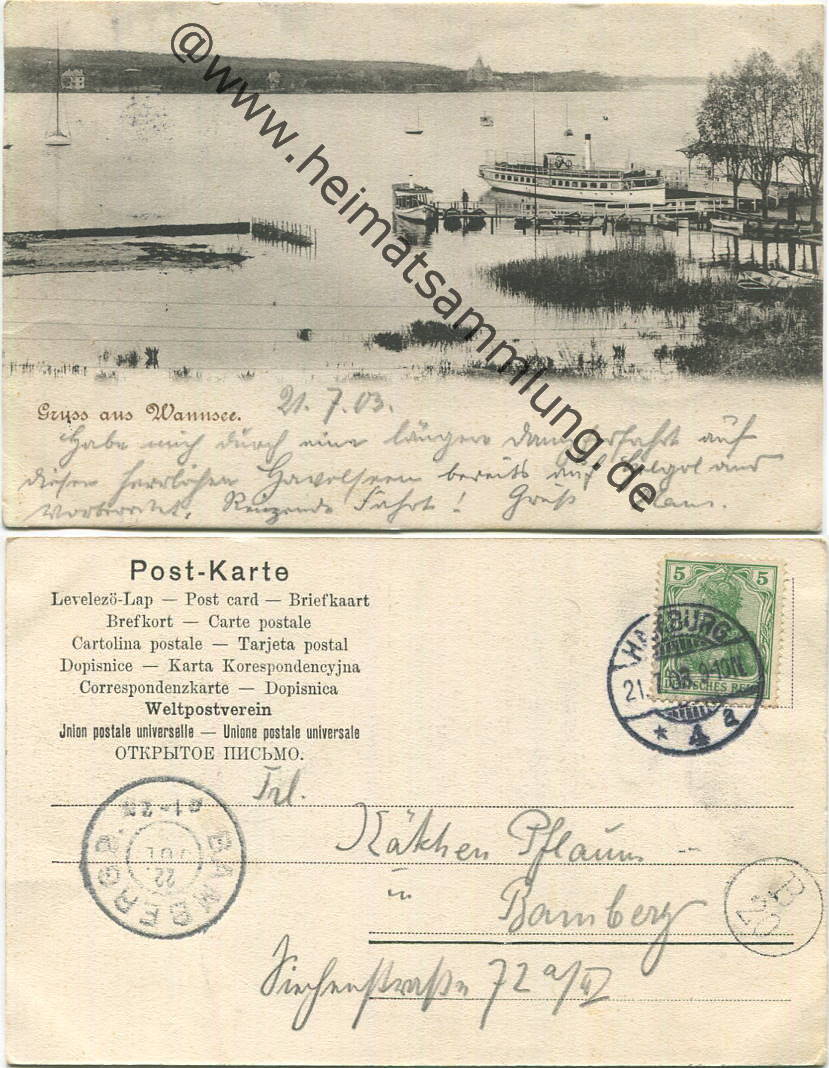 @www.heimatsammlung.de
Gruss aus Wannsee. 21. 7. 03.
Habe mich durch eine längere Dampferfahrt auf
diesen herrlichen Havelseen bereits auf
vorbereitet. Reizende Fahrt! Gruß
Post-Karte
Levelezö-Lap — Post card — Briefkaart
Brefkort — Carte postale
Cartolina postale — Tarjeta postal
Dopisnice — Karta Korespondencyjna
Correspondenzkarte — Dopisnica
Weltpostverein
Jnion postale universelle — Unione postale universale
ОТКРЫТОЕ ПИСЬМО.
5 5
DEUTSCHES REICH
HAMBURG
21. 7. 03. 9-10N.
* 4 a
Frl.
Käthchen Pflaum
in
Bamberg
Siechenstraße 72 a/II
BAMBERG 2
22. JUL